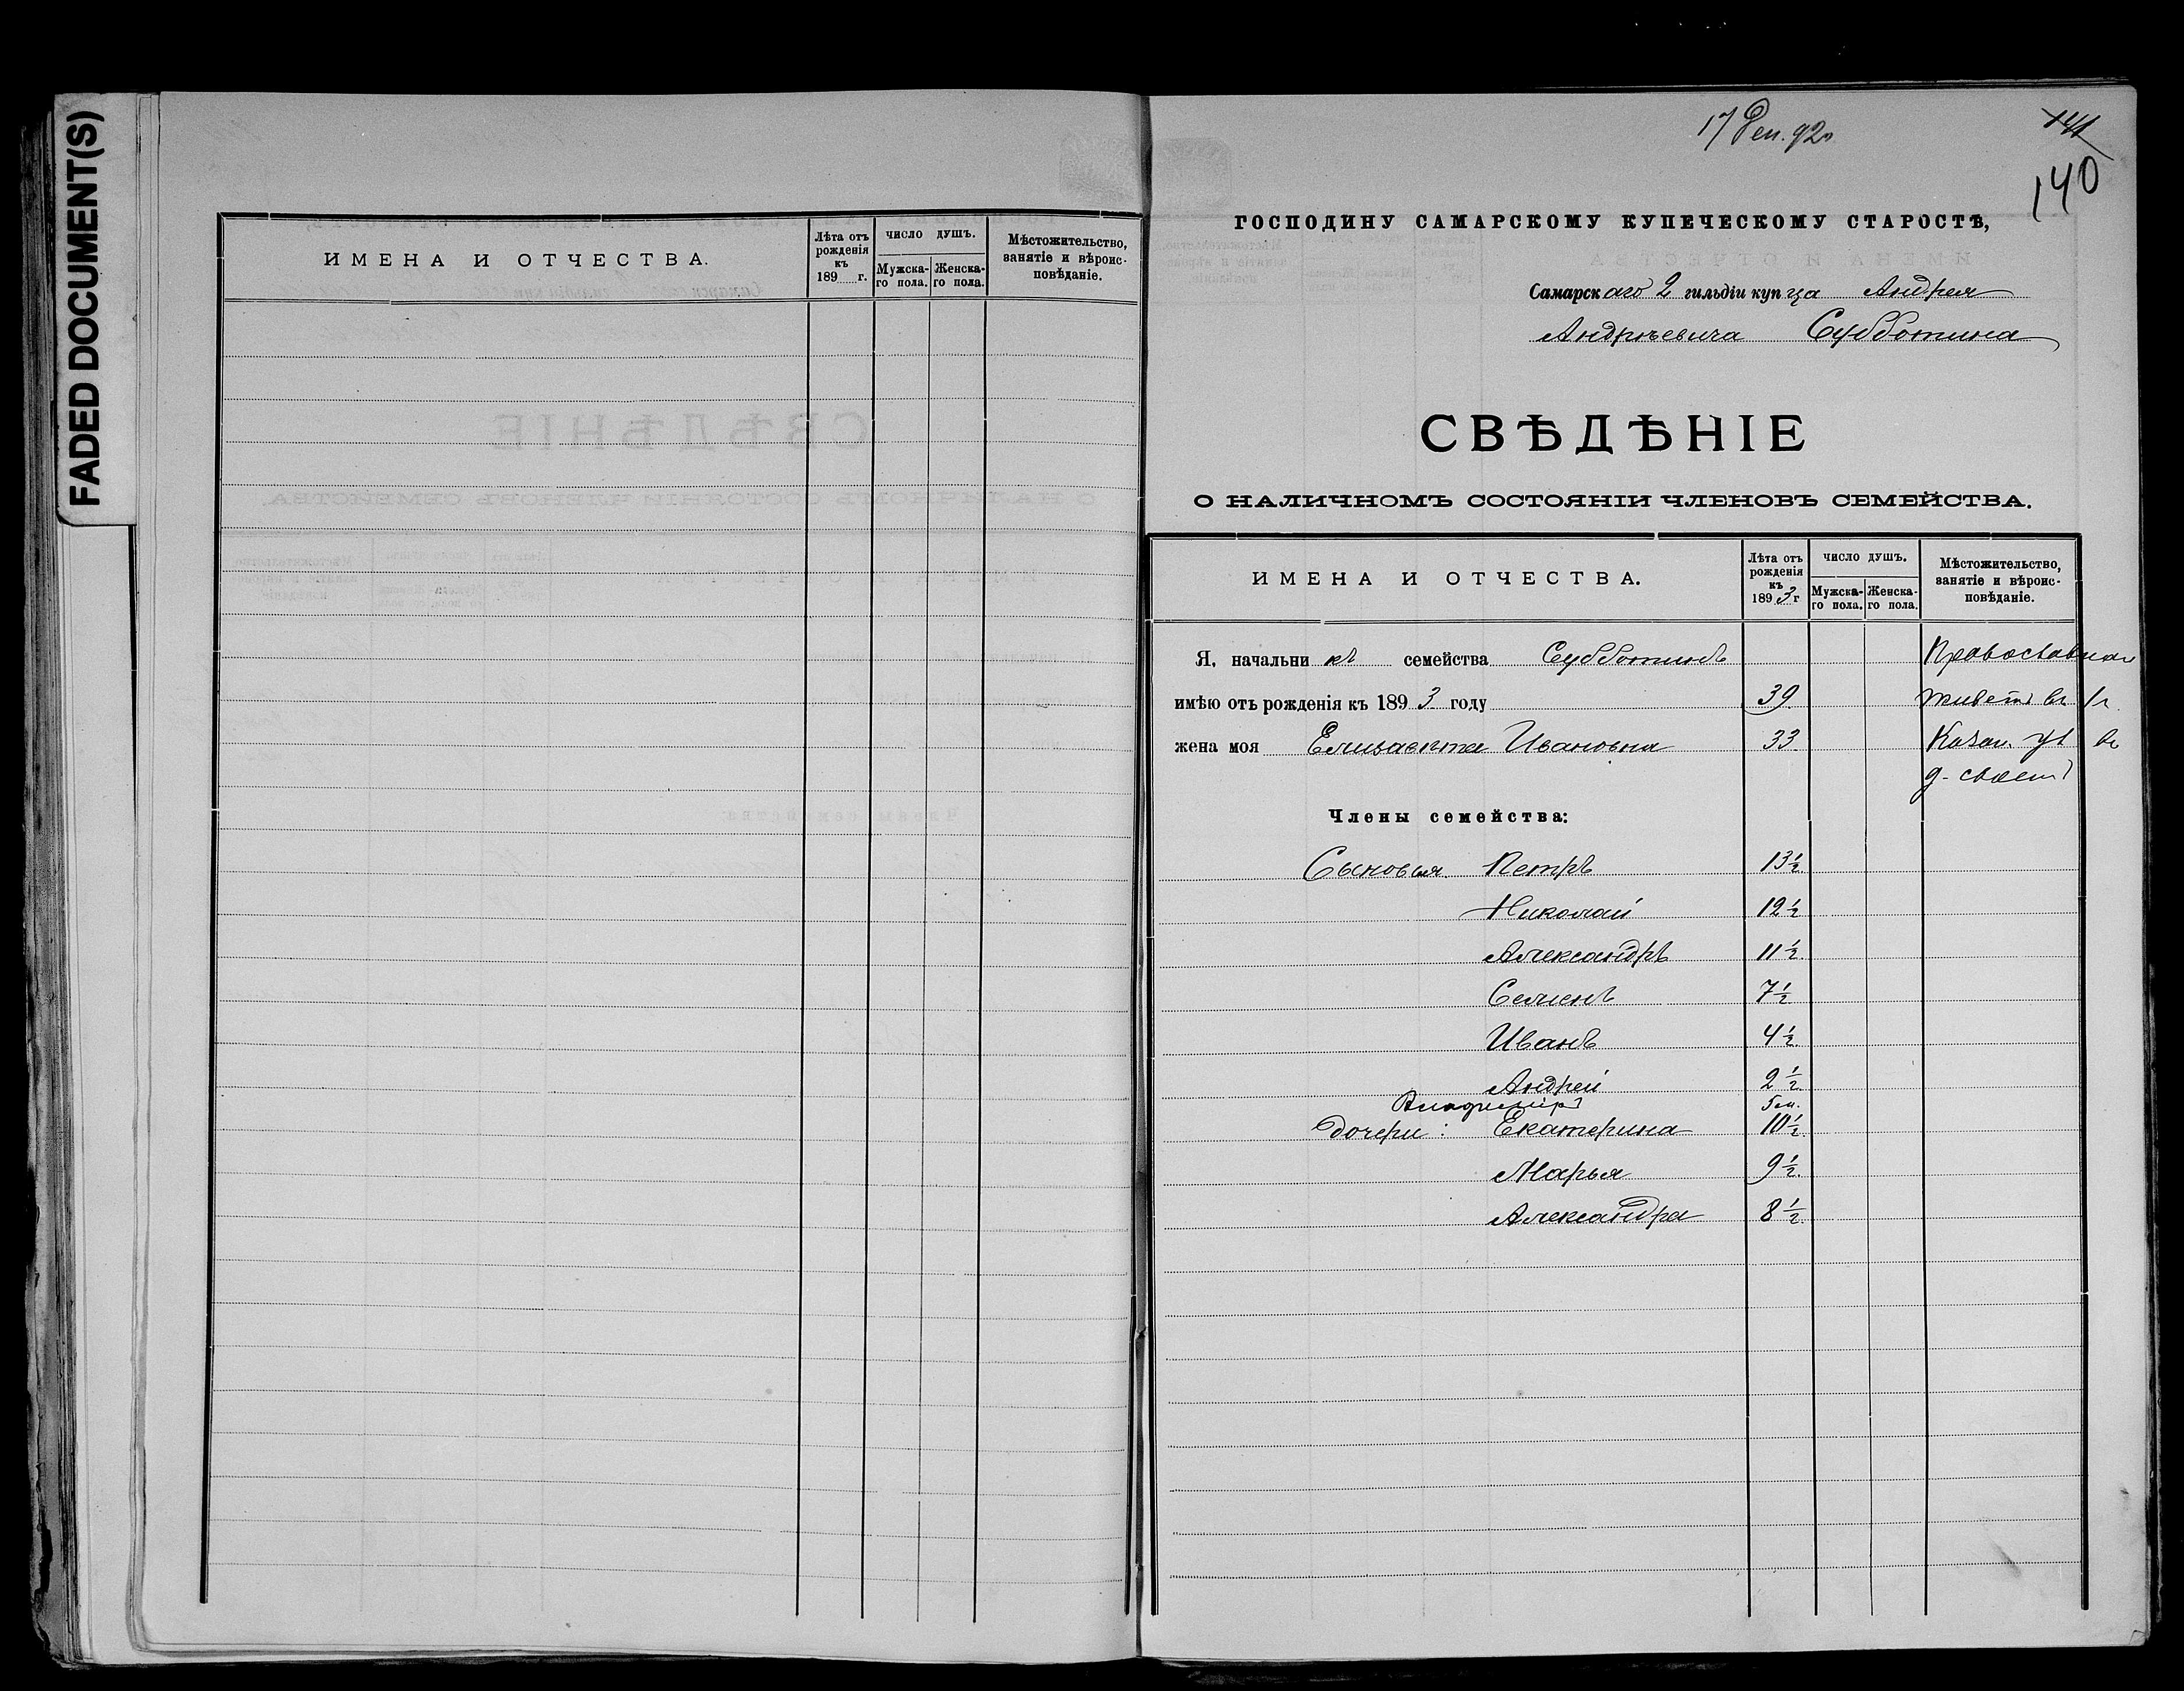 FADED DOCUMENT(S)
ИМЕНА И ОТЧЕСТВА.
Лѣта отъ рожденія къ 189 г.
число душъ.
Мужска-го пола.
Женска-го пола.
Мѣстожительство, занятіе и вѣроис-повѣданіе.
17 Дек. 92 г
141
140
ГОСПОДИНУ САМАРСКОМУ КУПЕЧЕСКОМУ СТАРОСТѢ,
Самарскаго 2 гильдіи купца Андрея
Андрѣевича Субботина
СВѢДѢНІЕ
О НАЛИЧНОМЪ СОСТОЯНІИ ЧЛЕНОВЪ СЕМЕЙСТВА.
ИМЕНА И ОТЧЕСТВА.
Лѣта отъ рожденія къ 1893 г
число душъ.
Мужска-го пола.
Женска-го пола.
Мѣстожительство, занятіе и вѣроис-повѣданіе.
Я, начальникъ семейства Субботинъ Православная
имѣю отъ рожденія къ 1893 году 39 живетъ въ 1 ч.
жена моя Елизавѣта Ивановна 33 Казан. ул въ
д. своемъ
Члены семейства:
Сыновья Петръ 13½
Николай 12½
Александръ 11½
Семенъ 7½
Иванъ 4½
Андрей 2½
Владиміръ 5 м.
Дочери: Екатерина 10½
Марья 9½
Александра 8½